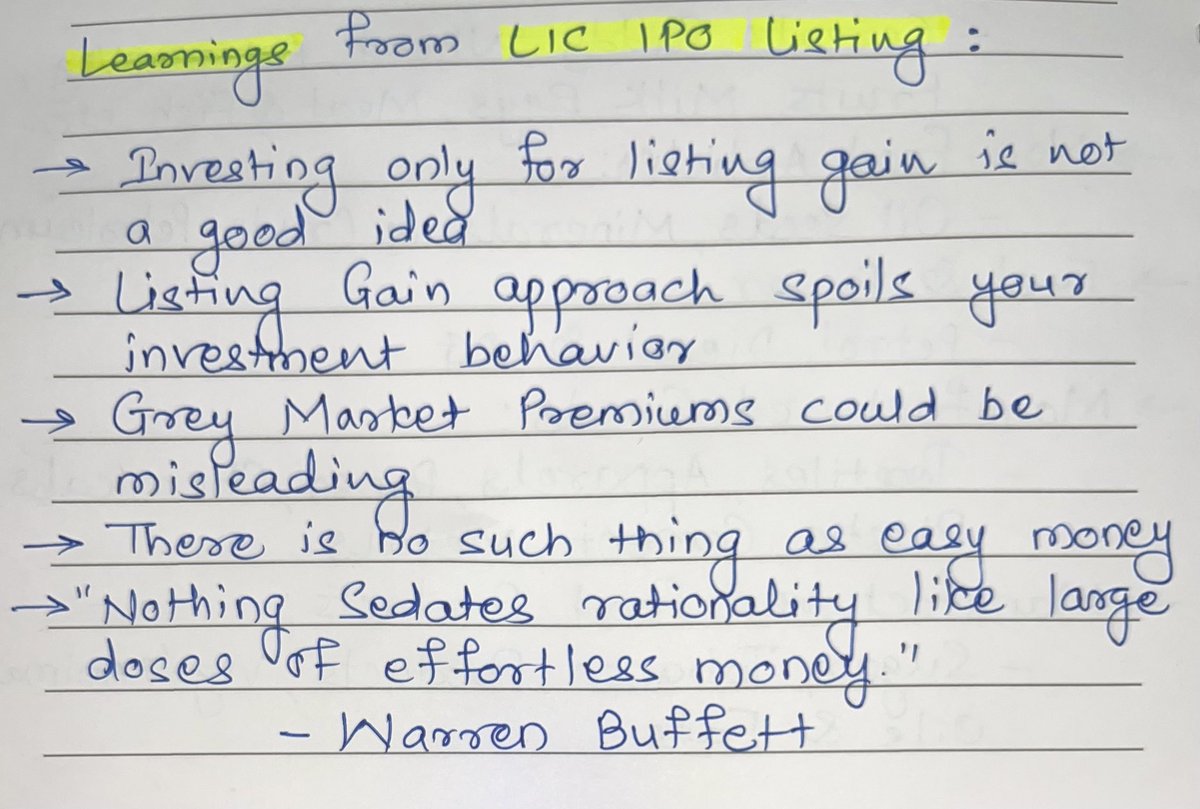 Learnings from LIC IPO Listing :
→ Investing only for listing gain is not
a good idea
→ Listing Gain approach spoils your
investment behavior
→ Grey Market Premiums could be
misleading
→ There is no such thing as easy money
→ "Nothing Sedates rationality like large
doses of effortless money."
- Warren Buffett